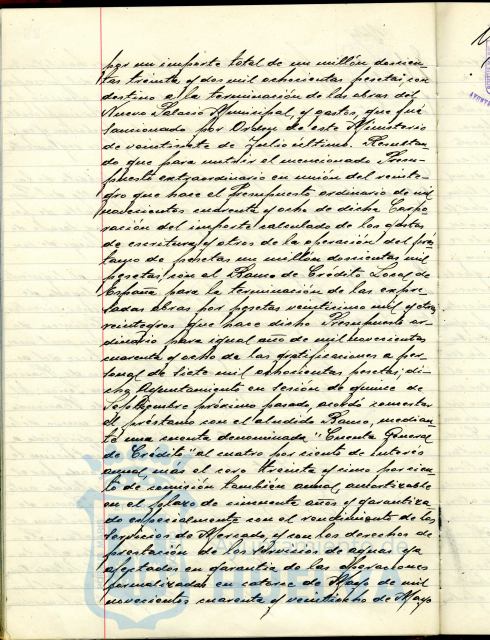 por un importe total de un millón doscien-
tas treinta y dos mil ochocientas pesetas, con
destino a la terminación de las obras del
Nuevo Palacio Municipal, y gastos, que fué
sancionado por Orden de este Ministerio
de veintisiete de Julio último. Resultan-
do que para nutrir el mencionado Presu-
puesto extraordinario en unión del reinte-
gro que hace el Presupuesto ordinario de mil
novecientos cuarenta y ocho de dicha Corpo-
ración del importe calculado de los gastos
de escritura y otros de la operación del prés-
tamo de pesetas un millón doscientas mil
pesetas, con el Banco de Crédito Local de
España para la terminación de las expre-
sadas obras por pesetas veinticinco mil y otro
reintegros que hace dicho Presupuesto or-
dinario para igual año de mil novecientos
cuarenta y ocho de las gratificaciones a per-
sonal de siete mil ochocientas pesetas, di-
cho Ayuntamiento en sesión de quince de
Septiembre próximo pasado, acordó concertar
el préstamo con el aludido Banco, median-
te una cuenta denominada "Cuenta General
de Crédito" al cuatro por ciento de interés
anual más el cero treinta y cinco por cien-
to de comisión también anual, amortizable
en el plazo de cincuenta años y garantiza-
do especialmente con el rendimiento de los
servicios de Mercado, y con los derechos de
prestación de los servicios de aguas ya
afectados en garantía de las operaciones
formalizadas en catorce de Mayo de mil
novecientos cuarenta y veintiocho de Mayo